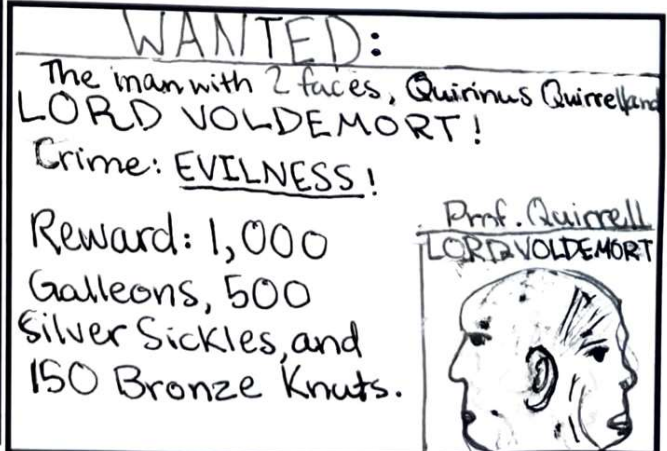 WANTED:
The man with 2 faces, Quirinus Quirrell and
LORD VOLDEMORT!
Crime: EVILNESS!
Reward: 1,000
Galleons, 500
Silver Sickles, and
150 Bronze Knuts.
Prof. Quirrell
LORD VOLDEMORT